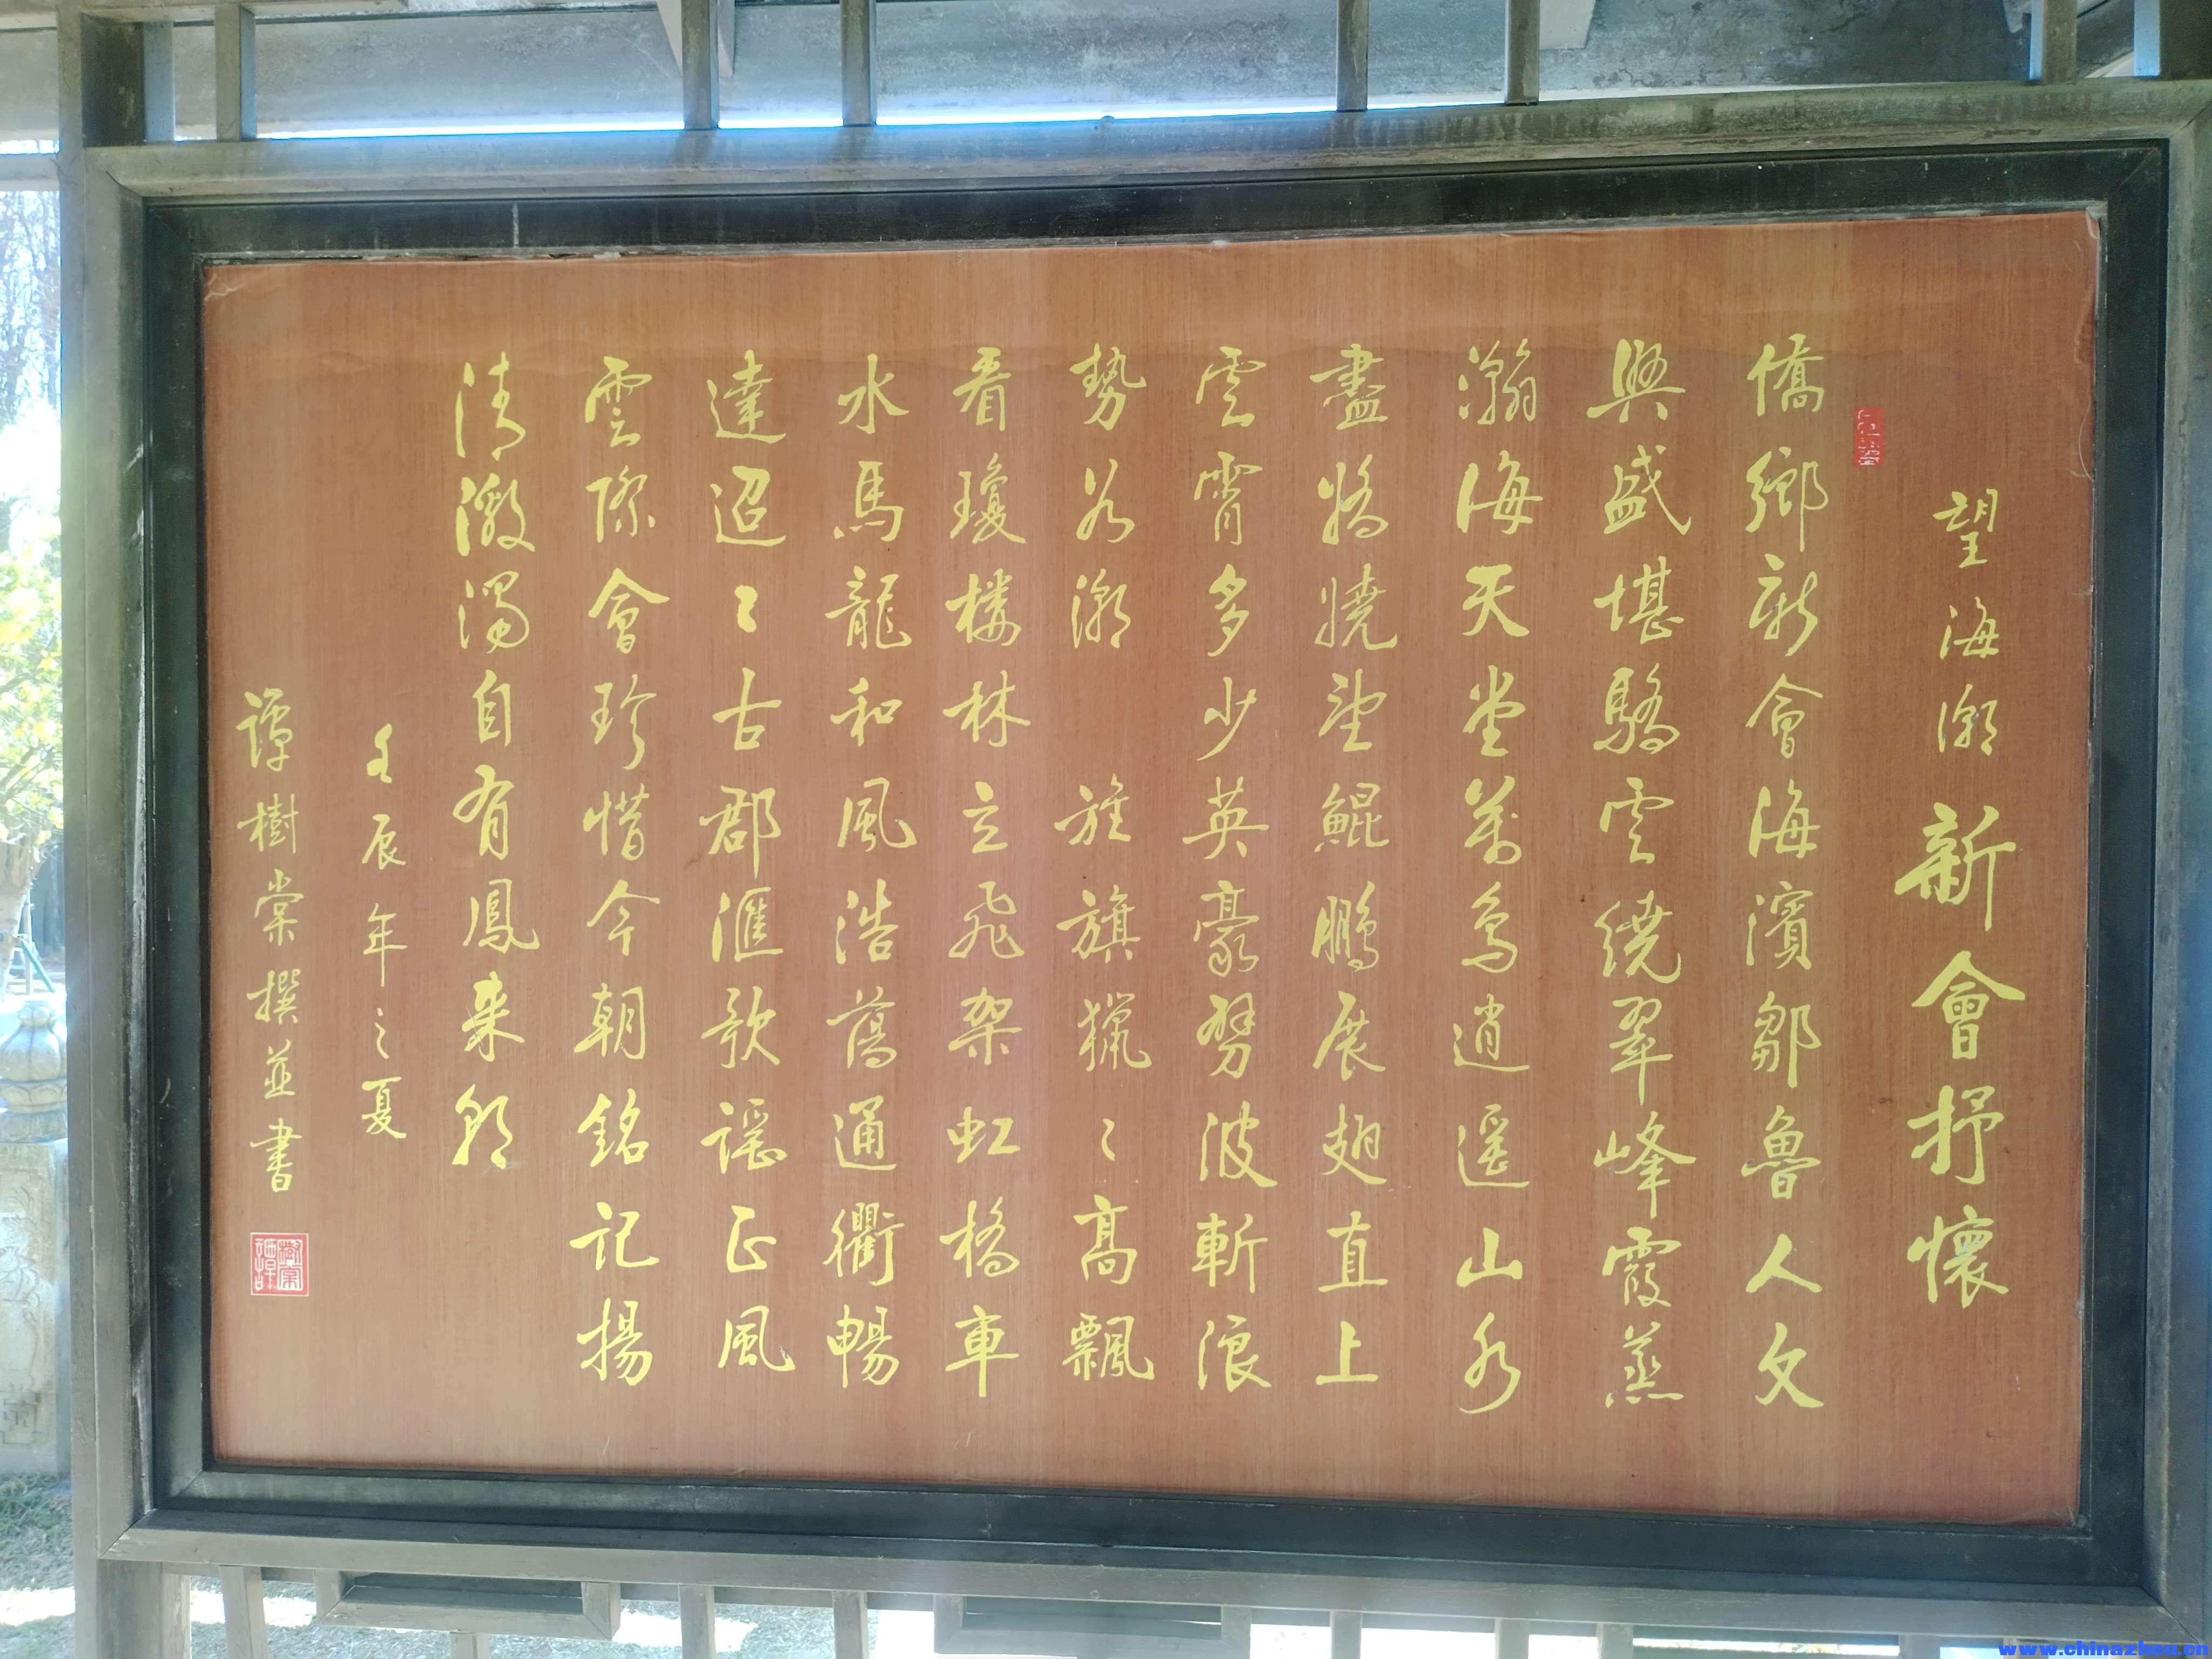 望海潮 新會抒懷
僑鄉新會海濱鄒魯人文
興盛堪驕雲繞翠峰霞蒸
瀚海天堂萬鳥逍遥山水
盡嬌嬈望鯤鵬展翅直上
雲霄多少英豪劈波斬浪
勢若潮 旌旗獵〻高飄
看瓊樓林立飛架虹橋車
水馬龍和風浩蕩通衢暢
達迢〻古郡滙歌謡正風
雲際會珍惜今朝銘記揚
清激濁自有鳳來朝
壬辰年之夏
譚樹棠撰並書
www.chinazhou.cn